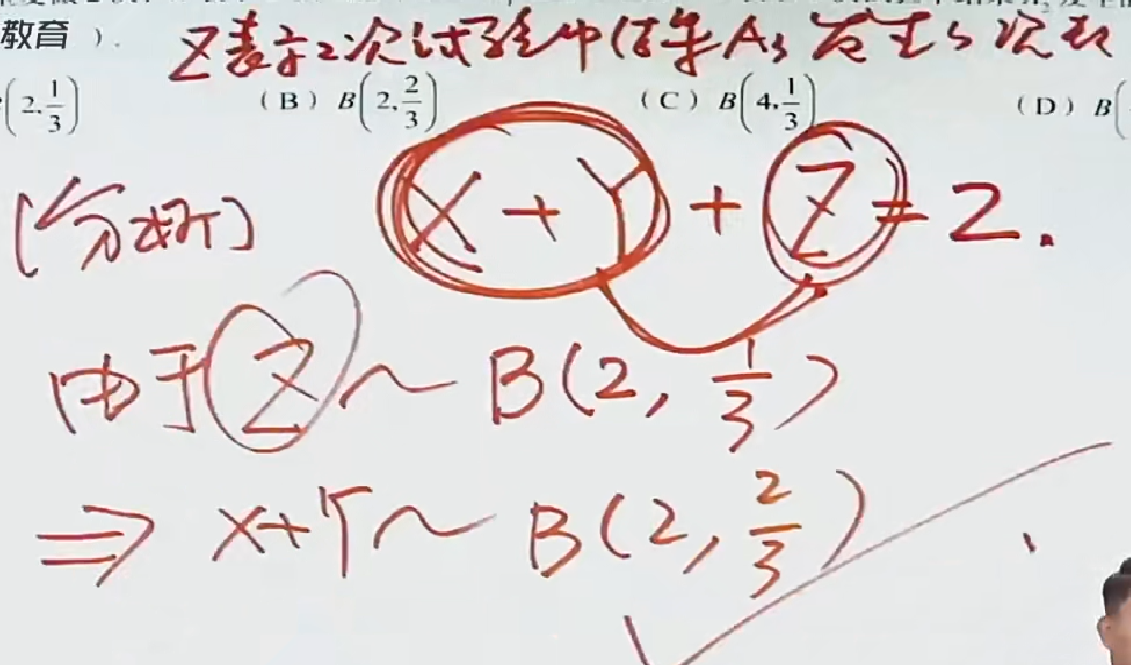 教育 ).
Z表示2次试验中结果A₃发生的次数
(2,1/3) (B) B(2,2/3) (C) B(4,1/3) (D) B(
[分析] X+Y+Z=2.
由于Z~B(2,1/3)
⇒ X+Y~B(2,2/3)